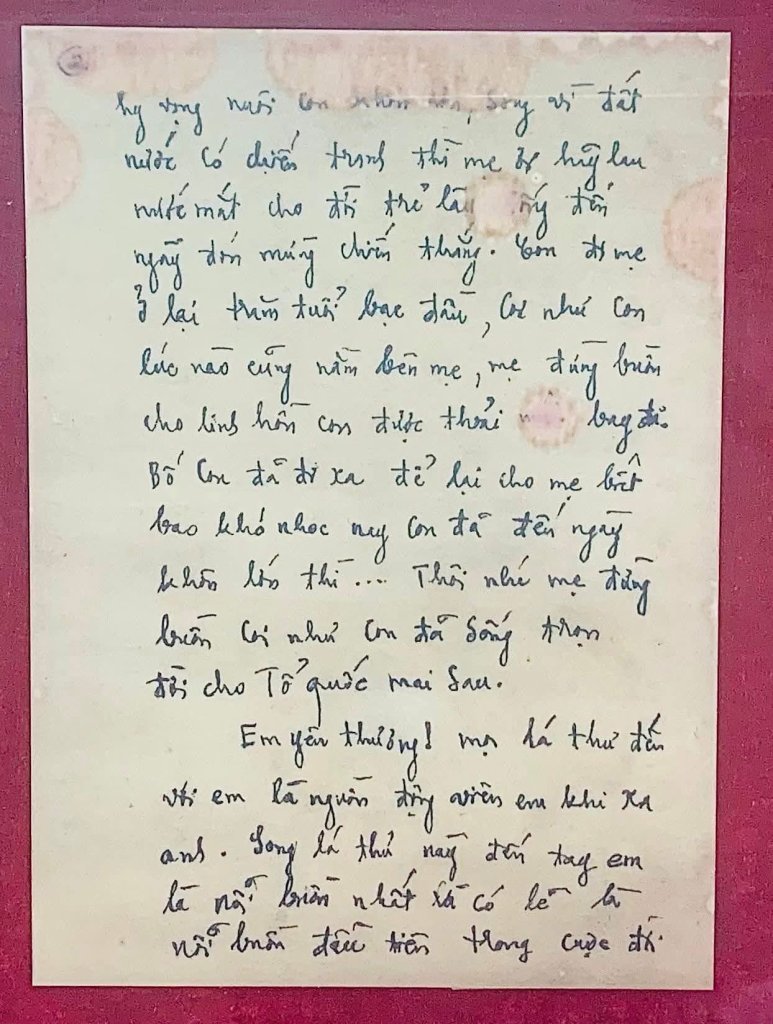 2
hy vọng nuôi con khôn lớn, Song vì đất
nước có chiến tranh thì mẹ ơi hãy lau
nước mắt cho đời trẻ lâu đến
ngày đón mừng chiến thắng. Con đi mẹ
ở lại trăm tuổi bạc đầu, Coi như con
lúc nào cũng nằm bên mẹ, mẹ đừng buồn
cho linh hồn con được thoải bay đi.
Bố Con đã đi xa để lại cho mẹ biết
bao khó nhọc nay con đã đến ngày
khôn lớn thì.... Thôi nhé mẹ đừng
buồn Coi như con đã Sống trọn
đời cho Tổ quốc mai Sau.
Em yêu thương! mọi lá thư đến
với em là nguồn động viên em khi xa
anh. Song lá thư này đến tay em
là nỗi buồn nhất và có lẽ là
nỗi buồn đầu tiên trong cuộc đời.